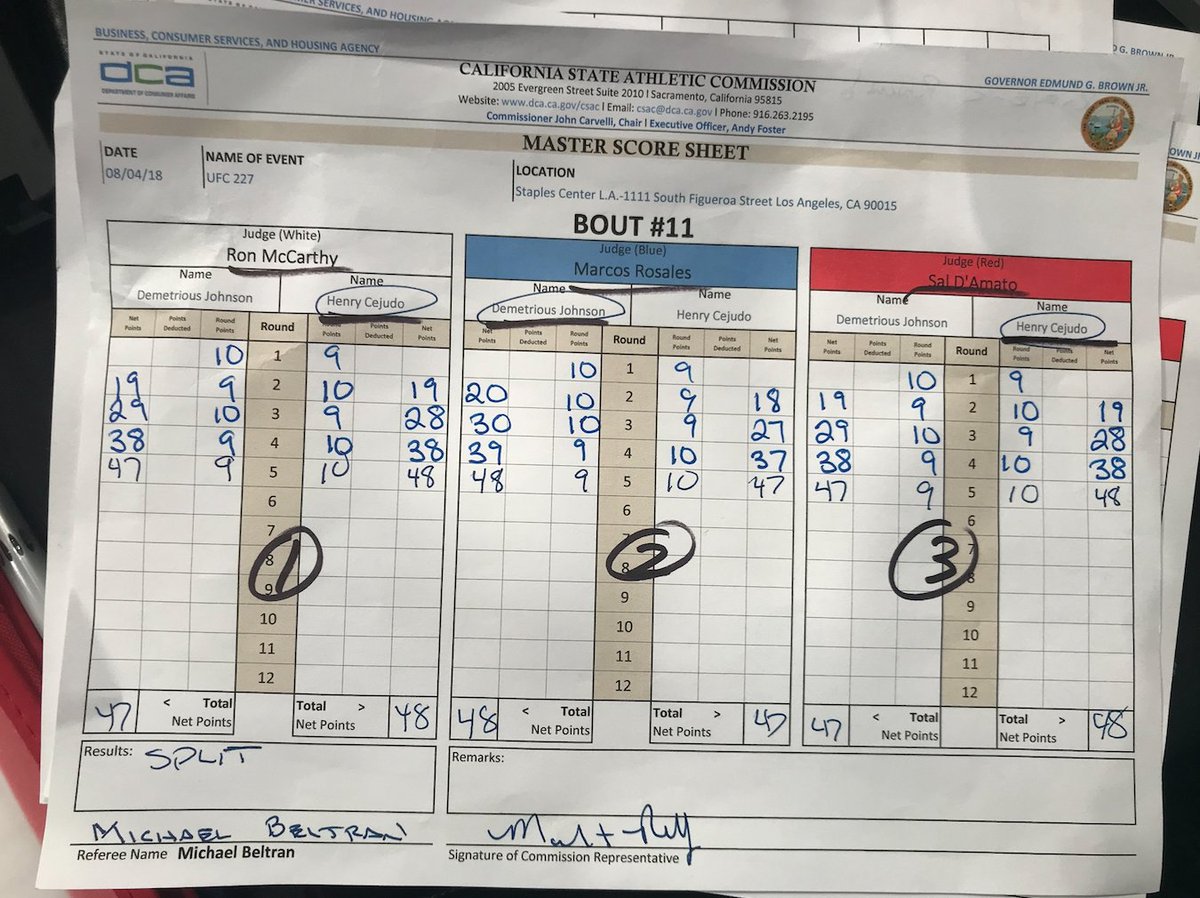 SERVICES, AND HOUSING
G. BROWN JR.
BUSINESS, CONSUMER SERVICES, AND HOUSING AGENCY
STATE OF CALIFORNIA
dca
DEPARTMENT OF CONSUMER AFFAIRS
CALIFORNIA STATE ATHLETIC COMMISSION
2005 Evergreen Street Suite 2010 l Sacramento, California 95815
Website: www.dca.ca.gov/csac l Email: csac@dca.ca.gov l Phone: 916.263.2195
Commissioner John Carvelli, Chair l Executive Officer, Andy Foster
GOVERNOR EDMUND G. BROWN JR.
MASTER SCORE SHEET
DATE
08/04/18
NAME OF EVENT
UFC 227
LOCATION
Staples Center L.A.-1111 South Figueroa Street Los Angeles, CA 90015
BOUT #11
Judge (White)
Ron McCarthy
Name Name
Demetrious Johnson Henry Cejudo
Net Points Points Deducted Round Points Round Round Points Points Deducted Net Points
10 1 9
19 9 2 10 19
29 10 3 9 28
38 9 4 10 38
47 9 5 10 48
6
7
8
9
10
11
12
1
47 < Total Net Points Total > Net Points 48
Judge (Blue)
Marcos Rosales
Name Name
Demetrious Johnson Henry Cejudo
Net Points Points Deducted Round Points Round Round Points Points Deducted Net Points
10 1 9
20 10 2 9 18
30 10 3 9 27
39 9 4 10 37
48 9 5 10 47
6
7
8
9
10
11
12
2
48 < Total Net Points Total > Net Points 47
Judge (Red)
Sal D'Amato
Name Name
Demetrious Johnson Henry Cejudo
Net Points Points Deducted Round Points Round Round Points Points Deducted Net Points
10 1 9
19 9 2 10 19
29 10 3 9 28
38 9 4 10 38
47 9 5 10 48
6
7
8
9
10
11
12
3
47 < Total Net Points Total > Net Points 48
Results: SPLIT
Remarks:
MICHAEL BELTRAN
Referee Name Michael Beltran
Signature of Commission Representative